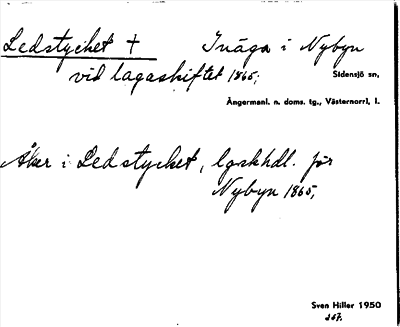 Ledstycket † Inäga i Nybyn
vid lagaskiftet 1865;
Sidensjö sn,
Ångermanl. n. doms. tg., Västernorrl. l.
Åker i Ledstycket, lgskhdl. för
Nybyn 1865;
Sven Hiller 1950
267.